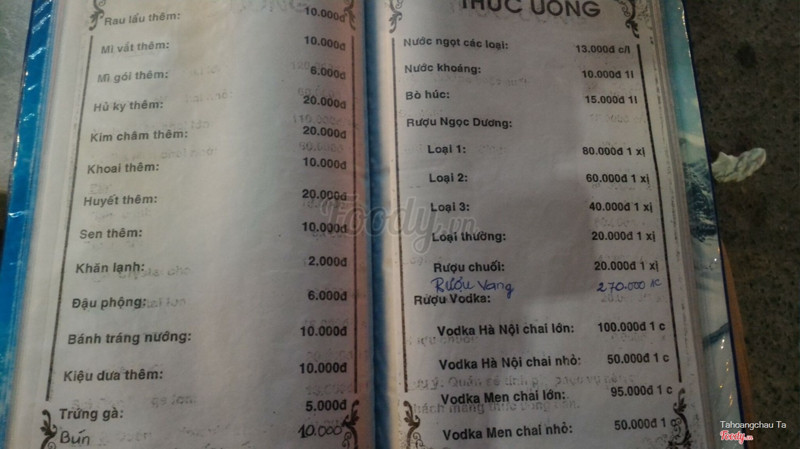 Rau lẩu thêm: 10.000đ
Mì vắt thêm: 10.000đ
Mì gói thêm: 6.000đ
Hủ ky thêm: 20.000đ
Kim châm thêm: 20.000đ
Khoai thêm: 10.000đ
Huyết thêm: 20.000đ
Sen thêm: 10.000đ
Khăn lạnh: 2.000đ
Đậu phộng: 6.000đ
Bánh tráng nướng: 10.000đ
Kiệu dưa thêm: 10.000đ
Trứng gà: 5.000đ
Bún 10.000
THỨC UỐNG
Nước ngọt các loại: 13.000đ c/l
Nước khoáng: 10.000đ 1l
Bò húc: 15.000đ 1l
Rượu Ngọc Dương:
Loại 1: 80.000đ 1 xị
Loại 2: 60.000đ 1 xị
Loại 3: 40.000đ 1 xị
Loại thường: 20.000đ 1 xị
Rượu chuối: 20.000đ 1 xị
Rượu vang 270.000 1c
Rượu Vodka:
Vodka Hà Nội chai lớn: 100.000đ 1 c
Vodka Hà Nội chai nhỏ: 50.000đ 1 c
Vodka Men chai lớn: 95.000đ 1 c
Vodka Men chai nhỏ: 50.000đ 1
Foody.vn
Tahoangchau Ta
Foody.vn